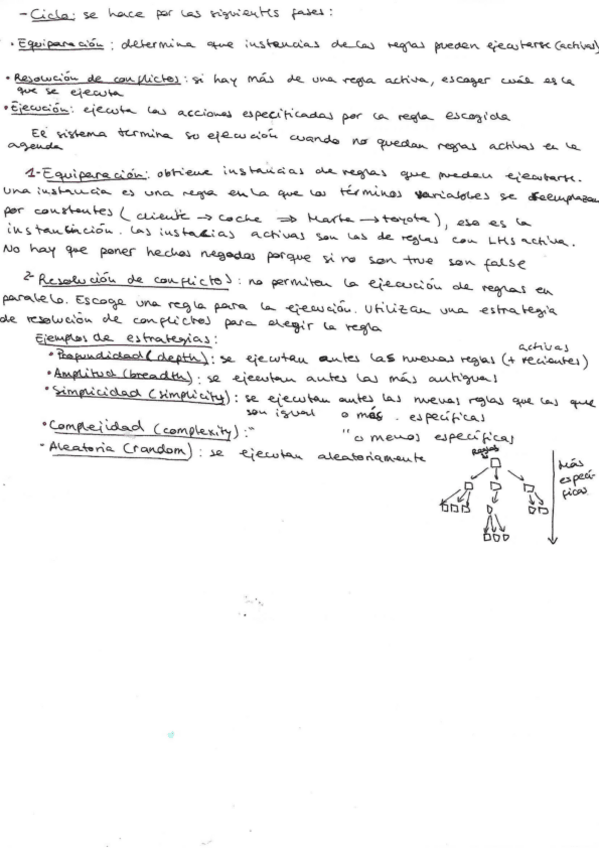 - Ciclo: se hace por las siguientes fases:
· Equiparación: determina que instancias de las reglas pueden ejecutarse (activas)
· Resolución de conflictos: si hay más de una regla activa, escoger cuál es la
que se ejecuta
· Ejecución: ejecuta las acciones especificadas por la regla escogida
El sistema termina su ejecución cuando no quedan reglas activas en la
agenda
1- Equiparación: obtiene instancias de reglas que puedan ejecutarse.
Una instancia es una regla en la que los términos variables se reemplazan
por constantes (cliente → coche ⇒ Marta → toyota), eso es la
instanciación. Las instacias activas son las de reglas con LHS activa.
No hay que poner hechos negados porque si no son true son false
2- Resolución de conflictos: no permiten la ejecución de reglas en
paralelo. Escoge una regla para la ejecución. Utilizan una estrategia
de resolución de conflictos para elegir la regla
Ejemplos de estrategias:
activas
· Profundidad (depth): se ejecutan antes las nuevas reglas (+ recientes)
· Amplitud (breadth): se ejecutan antes las más antiguas
· Simplicidad (simplicity): se ejecutan antes las nuevas reglas que las que
son igual o más específicas
· Complejidad (complexity): " " o menos específicas
· Aleatoria (random): se ejecutan aleatoriamente
Reglas
Más
especí-
ficas